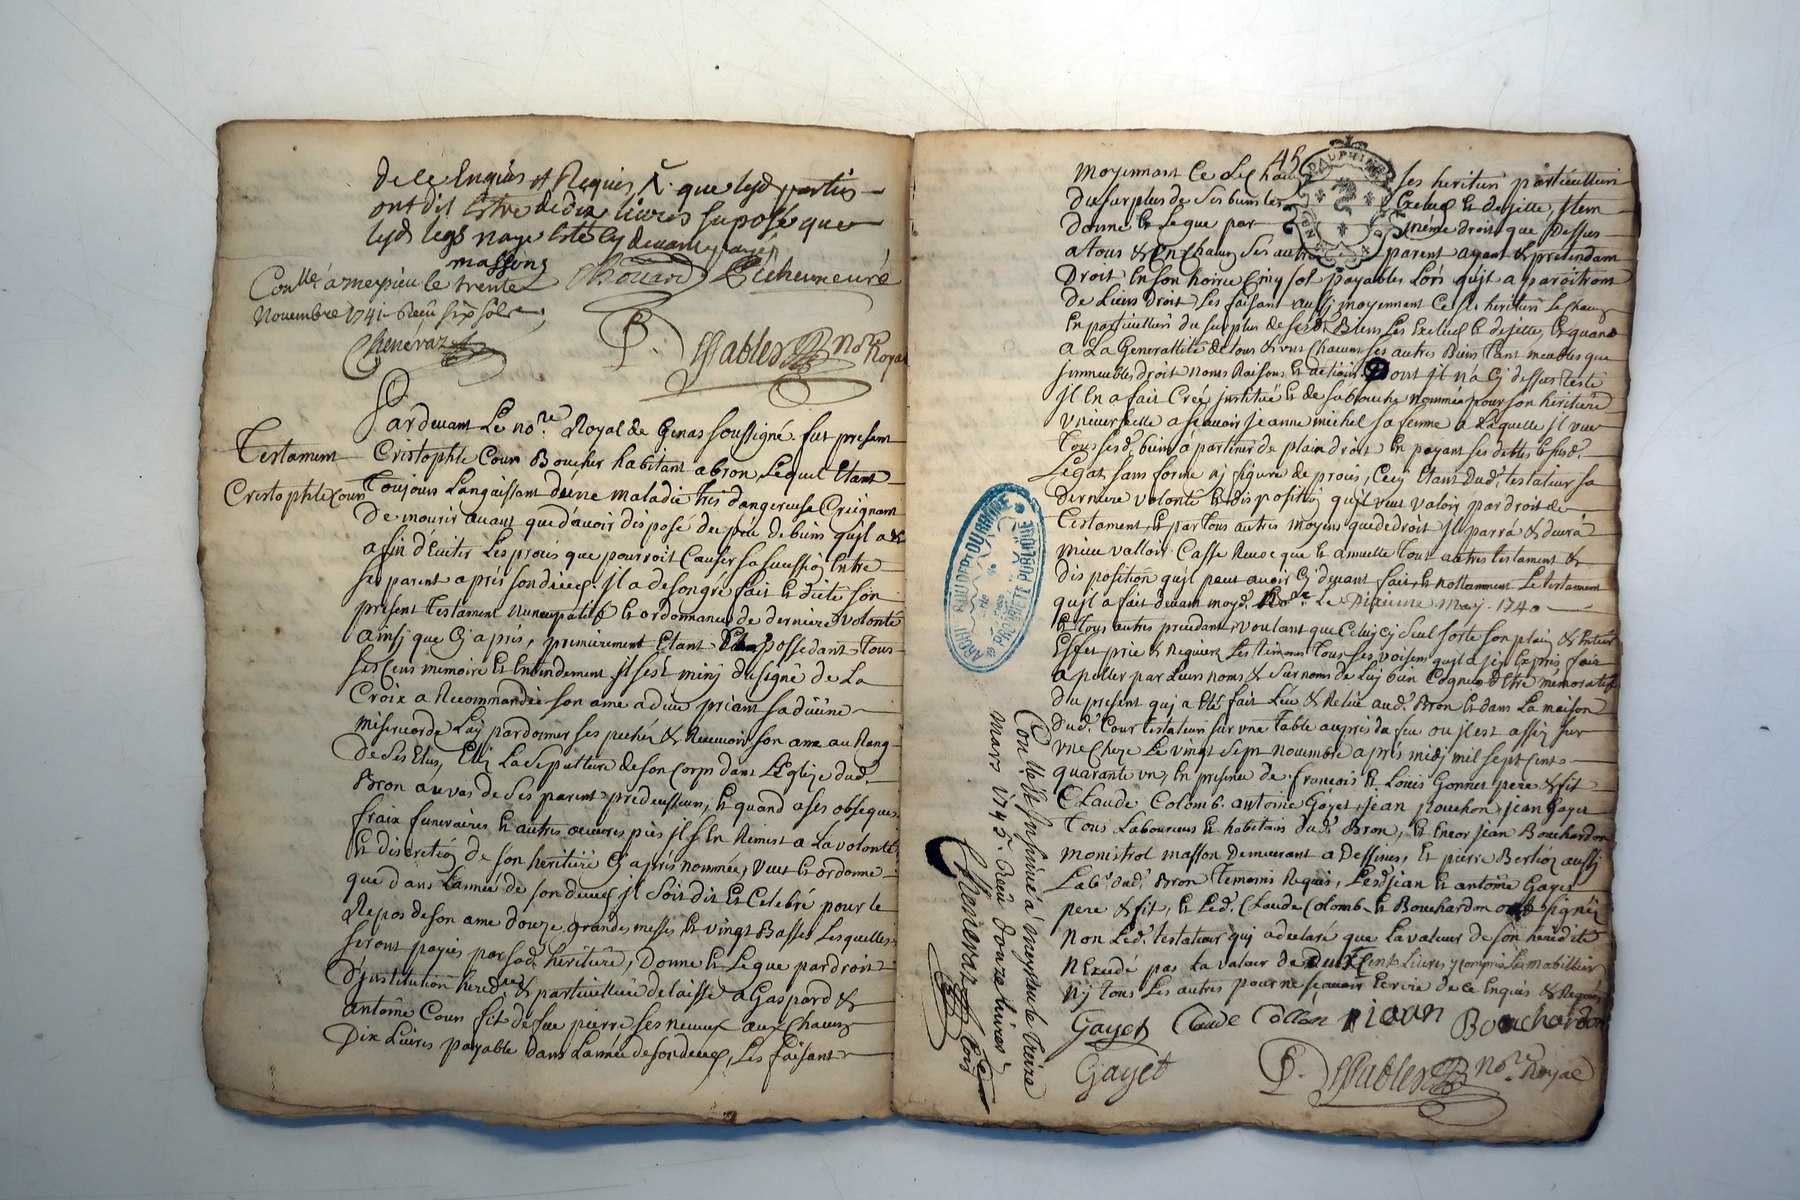 de ce Enquis et Requis, X. que lesd parties
ont dit Estre de dix livres suposé que
lesd legs naye Esté cy devant payés
massong
Chouard Richer curé
Conllé a meyzieu le trente
Novembre 1741 Reçu six sols
Cheneraz
P. no.re Royal
Pardevant Le no.re Royal de Genas soussigné fut present
Testament
Cristophle Cour
Cristophle Cour Boucher habitant a bron Lequel Etant
Toujours Langaissant d'une maladie très dangereuse Creignant
De mourir avant que d'avoir disposé du peu de biens qu'il a &
afin d'Eviter Les proués que pourroit Causer sa sucssion Entre
ses parent après son décés, il a de son gré fait et dicté son
présent Testament nuncupatif et ordonnance de derniere volonté
ainsy que Cy après, premièrement Etant possedant tous
ses cens memoire et Entendement il sest muny du signe de La
Croix a Recommandé son ame a dieu priant sa divine
misericorde Luy pardonner ses pechés & Recevoir son ame au Rang
De Ses Elus, Elu La Sepulture de son Corps dans L'Eglize dud.
Bron au vas de ses parent predecesseurs, et quand a ses obseques
fraix funeraires et autres oeuvres pies il s'En Remest a La volonté
et discretion de son heritiere Cy après nommée, Veut et ordonne
que dans L'année de son décés il Soit dit et Celebré pour le
Repos de son ame douze grandes messes et vingt Basses Lesquelles
seront payées par sad. heritiere, Donne et Legue par droit
D'institution hered.re & particulliere delaisse a Gaspard &
antoine Cour fils de feu pierre ses neveux aux Chacun
Dix Livres payable dans L'année de son décés, Les faisant
45
DAUPHINE
moyennant Ce ses heritiers particulliers
Du surplus de ses biens les Exclud et dejette, Item
Donne et Legue par même droit que Dessus
a tous & un Chacun Ses autres parent ayant et pretendant
Droit En son hoirie Cinq sol payables Lors qu'il aparoitront
de Leurs Droit Les faisant aussy moyennant Ce ses heritiers
En particulliers du surplus de sesd. Biens Les Exclud et dejette, et quand
a La Generallité de tous & uns Chacuns ses autres Biens Tant meubles que
immeubles droit noms Raisons et actions Dont il n'a Cy dessus testé
il En a fait Créé institué et de sa bouche nommée pour son heritière
Vniverselle a sçavoir jeanne michel sa femme a Laquelle il veut
Tous sesd. biens apartiner de plain droit En payant ses debtes et sesd.
Legat sans forme ny figure de proués, Cecy Etant dud. testateur sa
Derniere volonté et disposition qu'il veut valoir par droit de
Testament, et par tous autres moyens que de droit il poura & devra
mieux valloir. Casse Revoque et annulle tous autres testament &
Disposition qu'il peut avoir Cy devant fait, et nottamment Le testament
qu'il a fait devant moyd. No.re Le may 1740
et tous autres precedant, voulant que Celuy Cy seul sorte son plain & Entier
Effet prie & Requiers Les temoins tous ses voisins qu'il a icy Exprés fait
apeller par Leurs noms & surnoms de Luy bien Cognus d'Etre memoratif
Du present qui a Eté fait Leu & Releu aud. Bron et dans La maison
Dud. Cour testateur sur une table auprés du feu ou il est assis sur
une Cheze Le vingt sept novembre après midy mil sept Cents
quarante un, En presence de françois et Louis Gonnet pere & fils
Claude Colomb. antoine Gayet, jean Rouchon, jean Gayet
Tous Laboureurs et habitans dud. Bron, et Encor jean Bouchardon
monistrol masson Demeurant a Dessines, et pierre Berlioz aussy
Lab.r dud. Bron temoins Requis, Lesd jean et antoine Gayet
pere & fils, et Led. Claude Colomb et Bouchardon ont signés
Non Led. testateur qui a declaré que La valeur de son heredité
N'Excede pas La valeur de Deux Cent Livres y compris Le mobillier
ny tous Les autres pour ne sçavoir Ecrire de ce Enquis & Requis
Gayet Claude Collon jean Bouchardon
Gayet P. no.re Royal
PROPRIETE PUBLIQUE
Con.llé et Insinué a meyzieu le treize
mars 1745. Reçu douze livres
Cheneraz